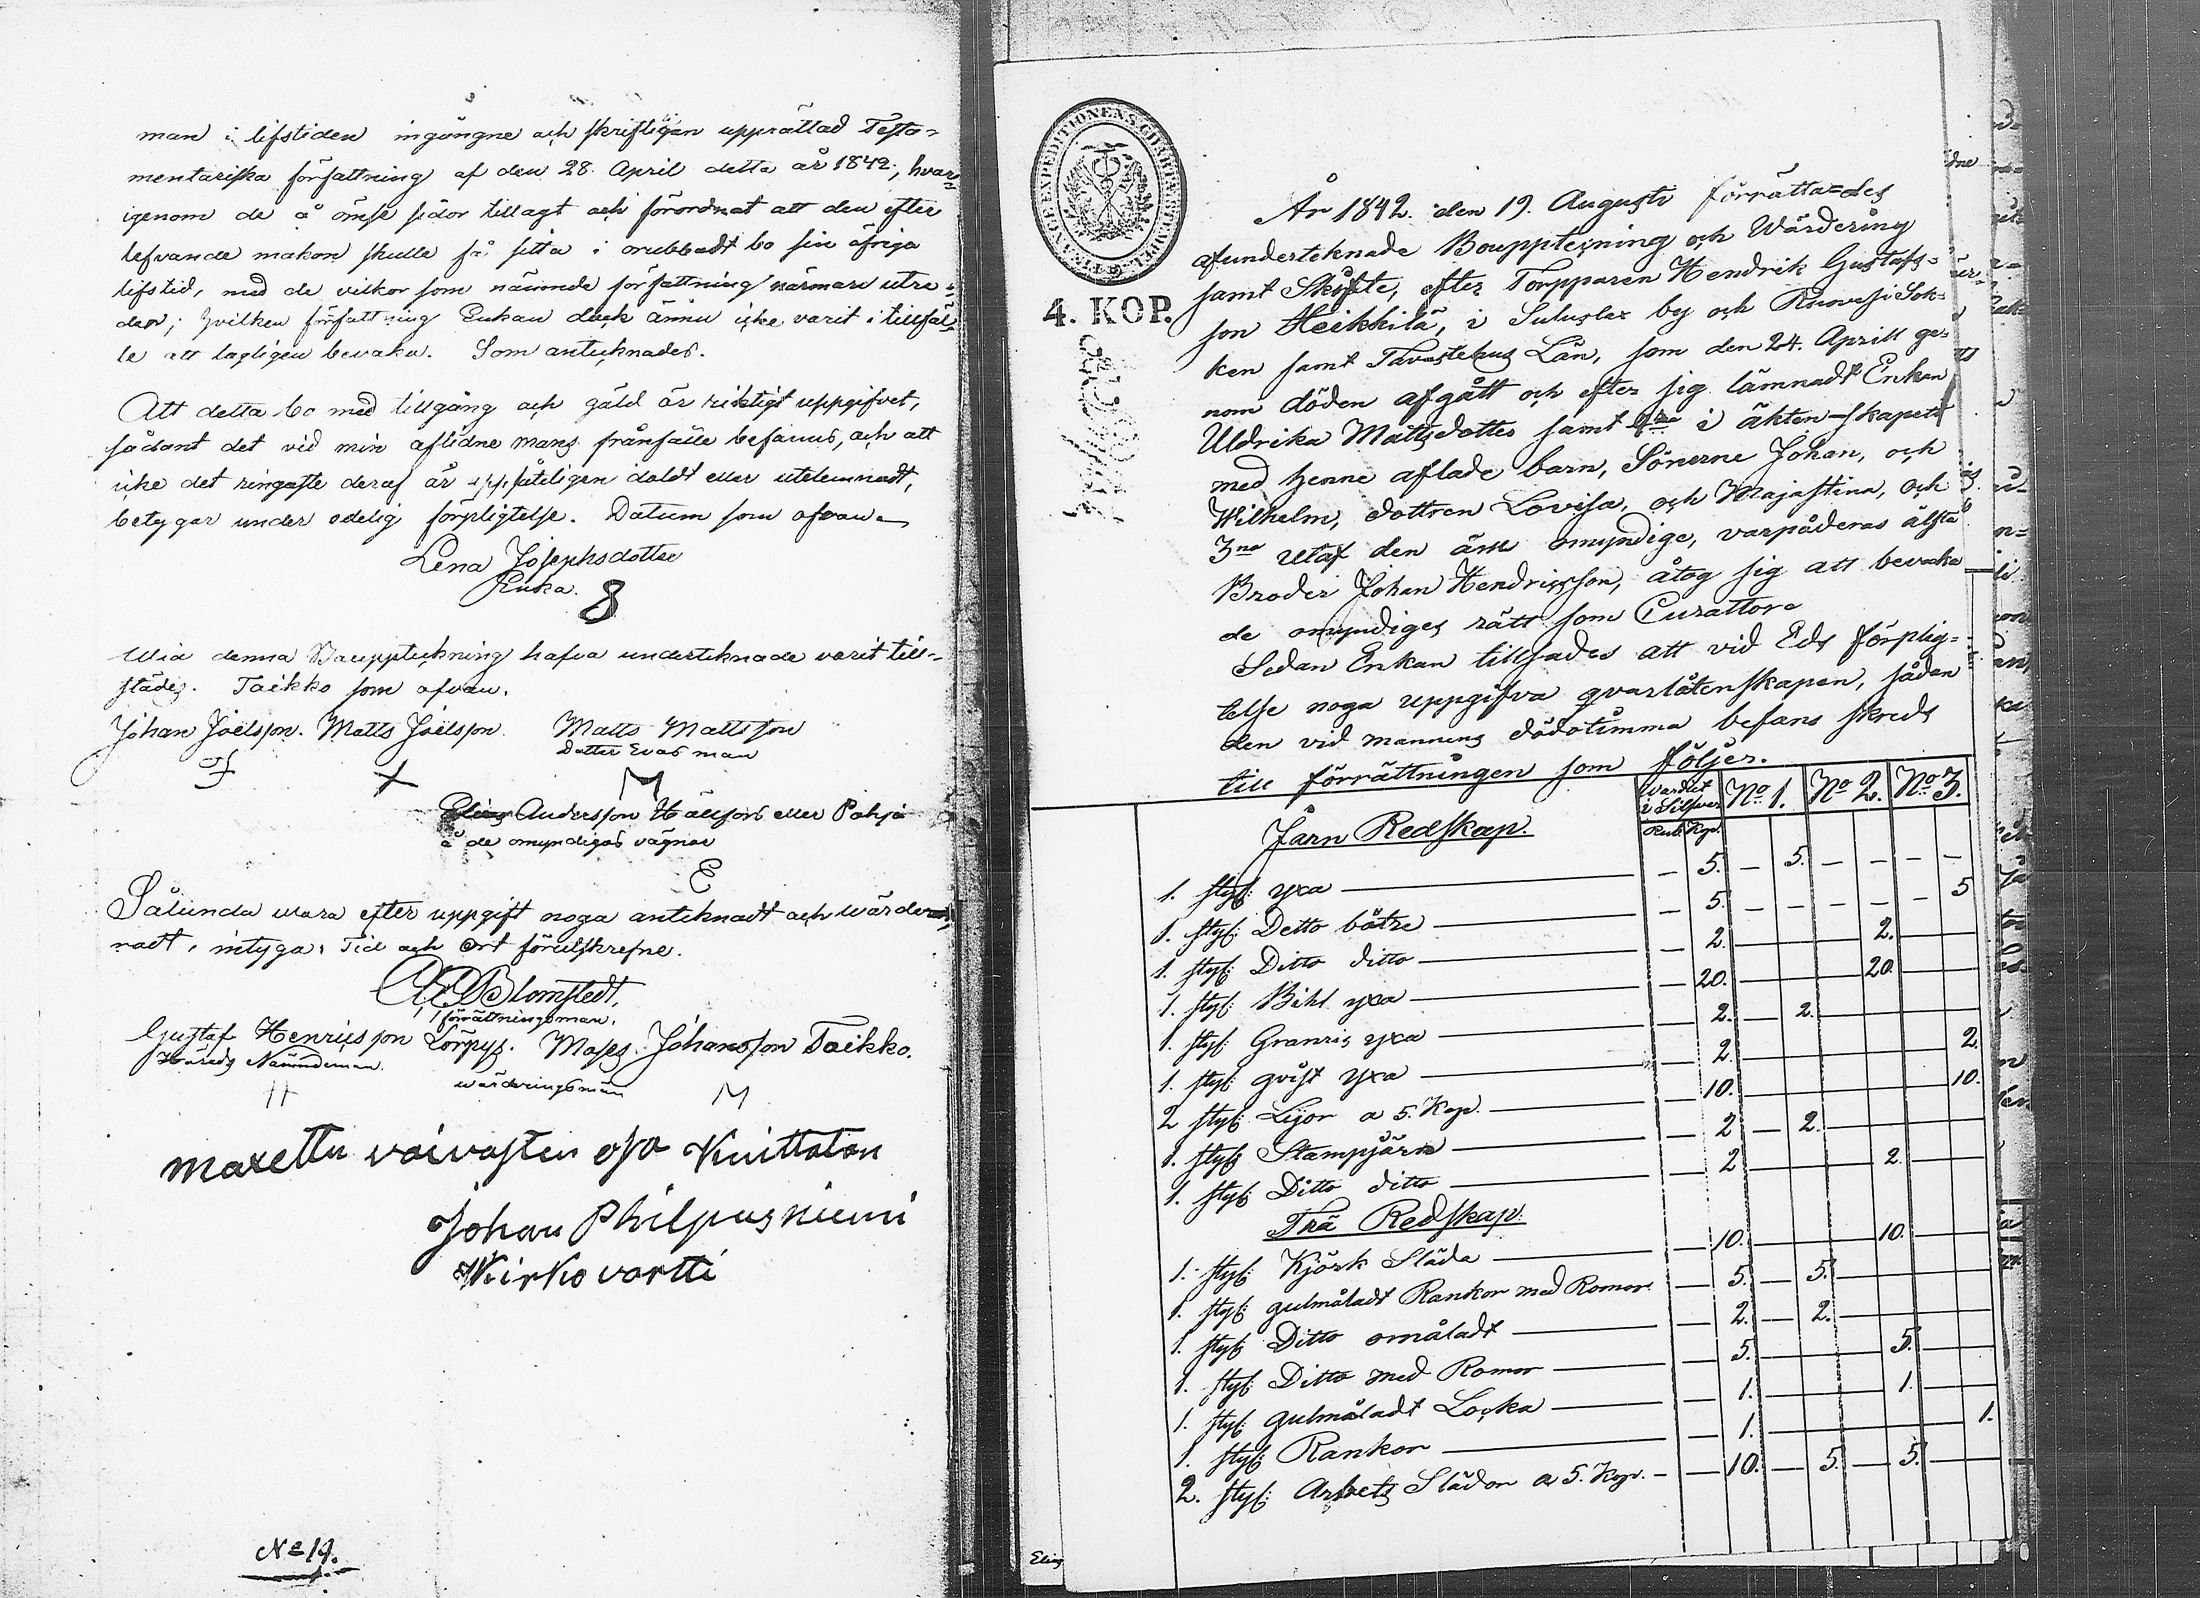 man i lifstiden ingångne och skriftligen upprättad Testa=
mentariska författning af den 28. April detta år 1842, hvar=
igenom de å ömse sidor tillagt och förordnat att den efter
lefvande makan skulle få sitta i orubbadt bo sin öfriga
lifstid, med de vilkor som nämnde författning närmare utre
der; hvilken författning Enkan dock ännu icke varit i tillfäl=
le att lagligen bevaka. Som antecknades.
Att detta bo med tillgång och gäld är riktigt uppgifvet,
sådant det vid min aflidne mans frånfälle befanns, och att
icke det ringaste deraf är uppsåteligen doldt eller utelemnadt,
betygar under edelig förpligtelse. Datum som ofvan.
Lena Josephsdotter
Enka.
8
Wid denna Bouppteckning hafva undertecknade varit till=
städes. Toikko som ofvan.
Johan Joëlsson. Matts Joëlsson. Matts Mattsson
Dotter Evas man
M
Elias Andersson Hällfors eller Pohja
å de omyndigas vägnar
E
Sålunda vara efter uppgift noga antecknadt och värde
radt, intyga; Tid och Ort förutskrefne.
Blomstedt,
förrättningsman.
Gustaf Henricsson Lörpys. Moses Johansson Toikko.
Härads Nämndeman. wärderingsmän
H M
maxettu vaivasten osa Kuittatan
Johan Philpusniemi
Kirkovartti
No 19.
4. KOP.
År 1842. den 19. Augusti förrätta=des
afunderteknade Bouppteçning och Wärdering
samt Skifte, efter Torpparen Hendrik Gustafs=
son Heikkilä, i Suluslax by och Ruovesi Sok=
ken samt Tavastehus Län, som den 24. Aprill ge=
nom döden afgått och efter sig lämnadt Enkan
Uldrika Mattsdotter samt 4ra i äkten=skapet
med henne aflade barn, Sönerne Johan, och
Wilhelm, dottren Lovisa, och Majastina, och
3ne utaf den äro omyndige, varpåderas älsta
Broder Johan Hendricsson, åtog sig att bevaka
de omyndiges rätt som Curattor.
Sedan Enkan tillsades att vid Eds förplig=
telse noga uppgifva qvarlåtenskapen, sådan
den vid mannens dödstimma befans skreds
till förrättningen som följer.
Wärdet i Silfver No 1. No 2. No 3.
Järn Redskap. Rub. Kop.
1. styk: yxa — 5. — 5. — — — —
1. styk: Detto bätre — 5. — — — — — 5
1. styk: Ditto ditto — 2. — 2. —
1. styk: Bihl yxa — 20. — 20. —
1. styk: Granris yxa — 2. — 2. —
1. styk: qvist yxa — 2. — 2.
2 styk: Lijor a 5. Kop. — 10. — 10.
1. styk: Stampjärn — 2 — 2. —
1. styk: Ditto ditto — 2 — 2. —
Trä Redskap.
1. styk: Kjörk Släda — 10. — 10. —
1. styk: gulmåladt Rankor med Romor. — 5. — 5. —
1. styk: Ditto omåladt — 2. — 2. —
1. styk: Ditto med Romor — 5. — 5. —
1. styk: gulmåladt Locka — 1. — 1. —
1. styk: Rankor — 1. — 1.
2. styk: Arbets Slädor a 5. Kop. — 10. — 5. — 5. —
Elias